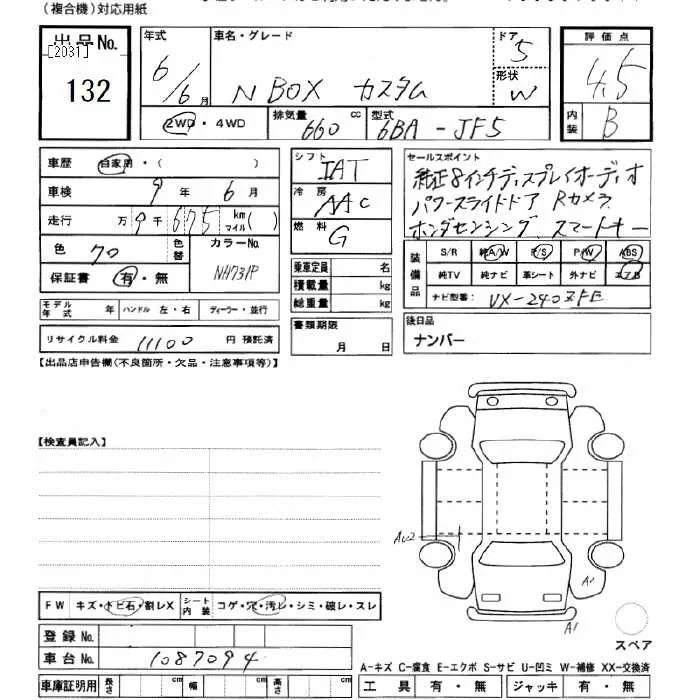 (複合機)対応用紙
出品No. 年式 車名・グレード ドア 5 評価点
[2031] 6/6月 N BOX カスタム 形状 W 4.5
132 2WD・4WD 排気量 660 cc 型式 6BA-JF5 内装 B
車歴 自家用・( ) シフト IAT セールスポイント
車検 9年 6月 冷房 AAC 純正8インチディスプレイオーディオ
走行 万 9千 675 km マイル ( ) 燃料 G パワースライドドア Rカメラ
ホンダセンシング スマートキー
色 70 色替 カラーNo. NH731P
保証書 有・無
乗車定員 名
積載量 kg
総重量 kg
装備品 S/R 純A/W P/S P/W ABS
純TV 純ナビ 革シート 外ナビ エアB
ナビ型番: VX-240ZFE
モデル年式 年 ハンドル 左・右 ディーラー・並行
書類期限 月 日
後日品
ナンバー
リサイクル料金 11100 円 預託済
【出品店申告欄(不良箇所・欠品・注意事項等)】
【検査員記入】
AU2
A1
A1
FW キズ・トビ石・割レX シート内装 コゲ・穴・汚レ・シミ・破レ・スレ
スペア
登録No.
車台No. 1087094
A-キズ C-腐食 E-エクボ S-サビ U-凹ミ W-補修 XX-交換済
車庫証明用 長さ cm 幅 cm 高さ cm 工具 有・無 ジャッキ 有・無